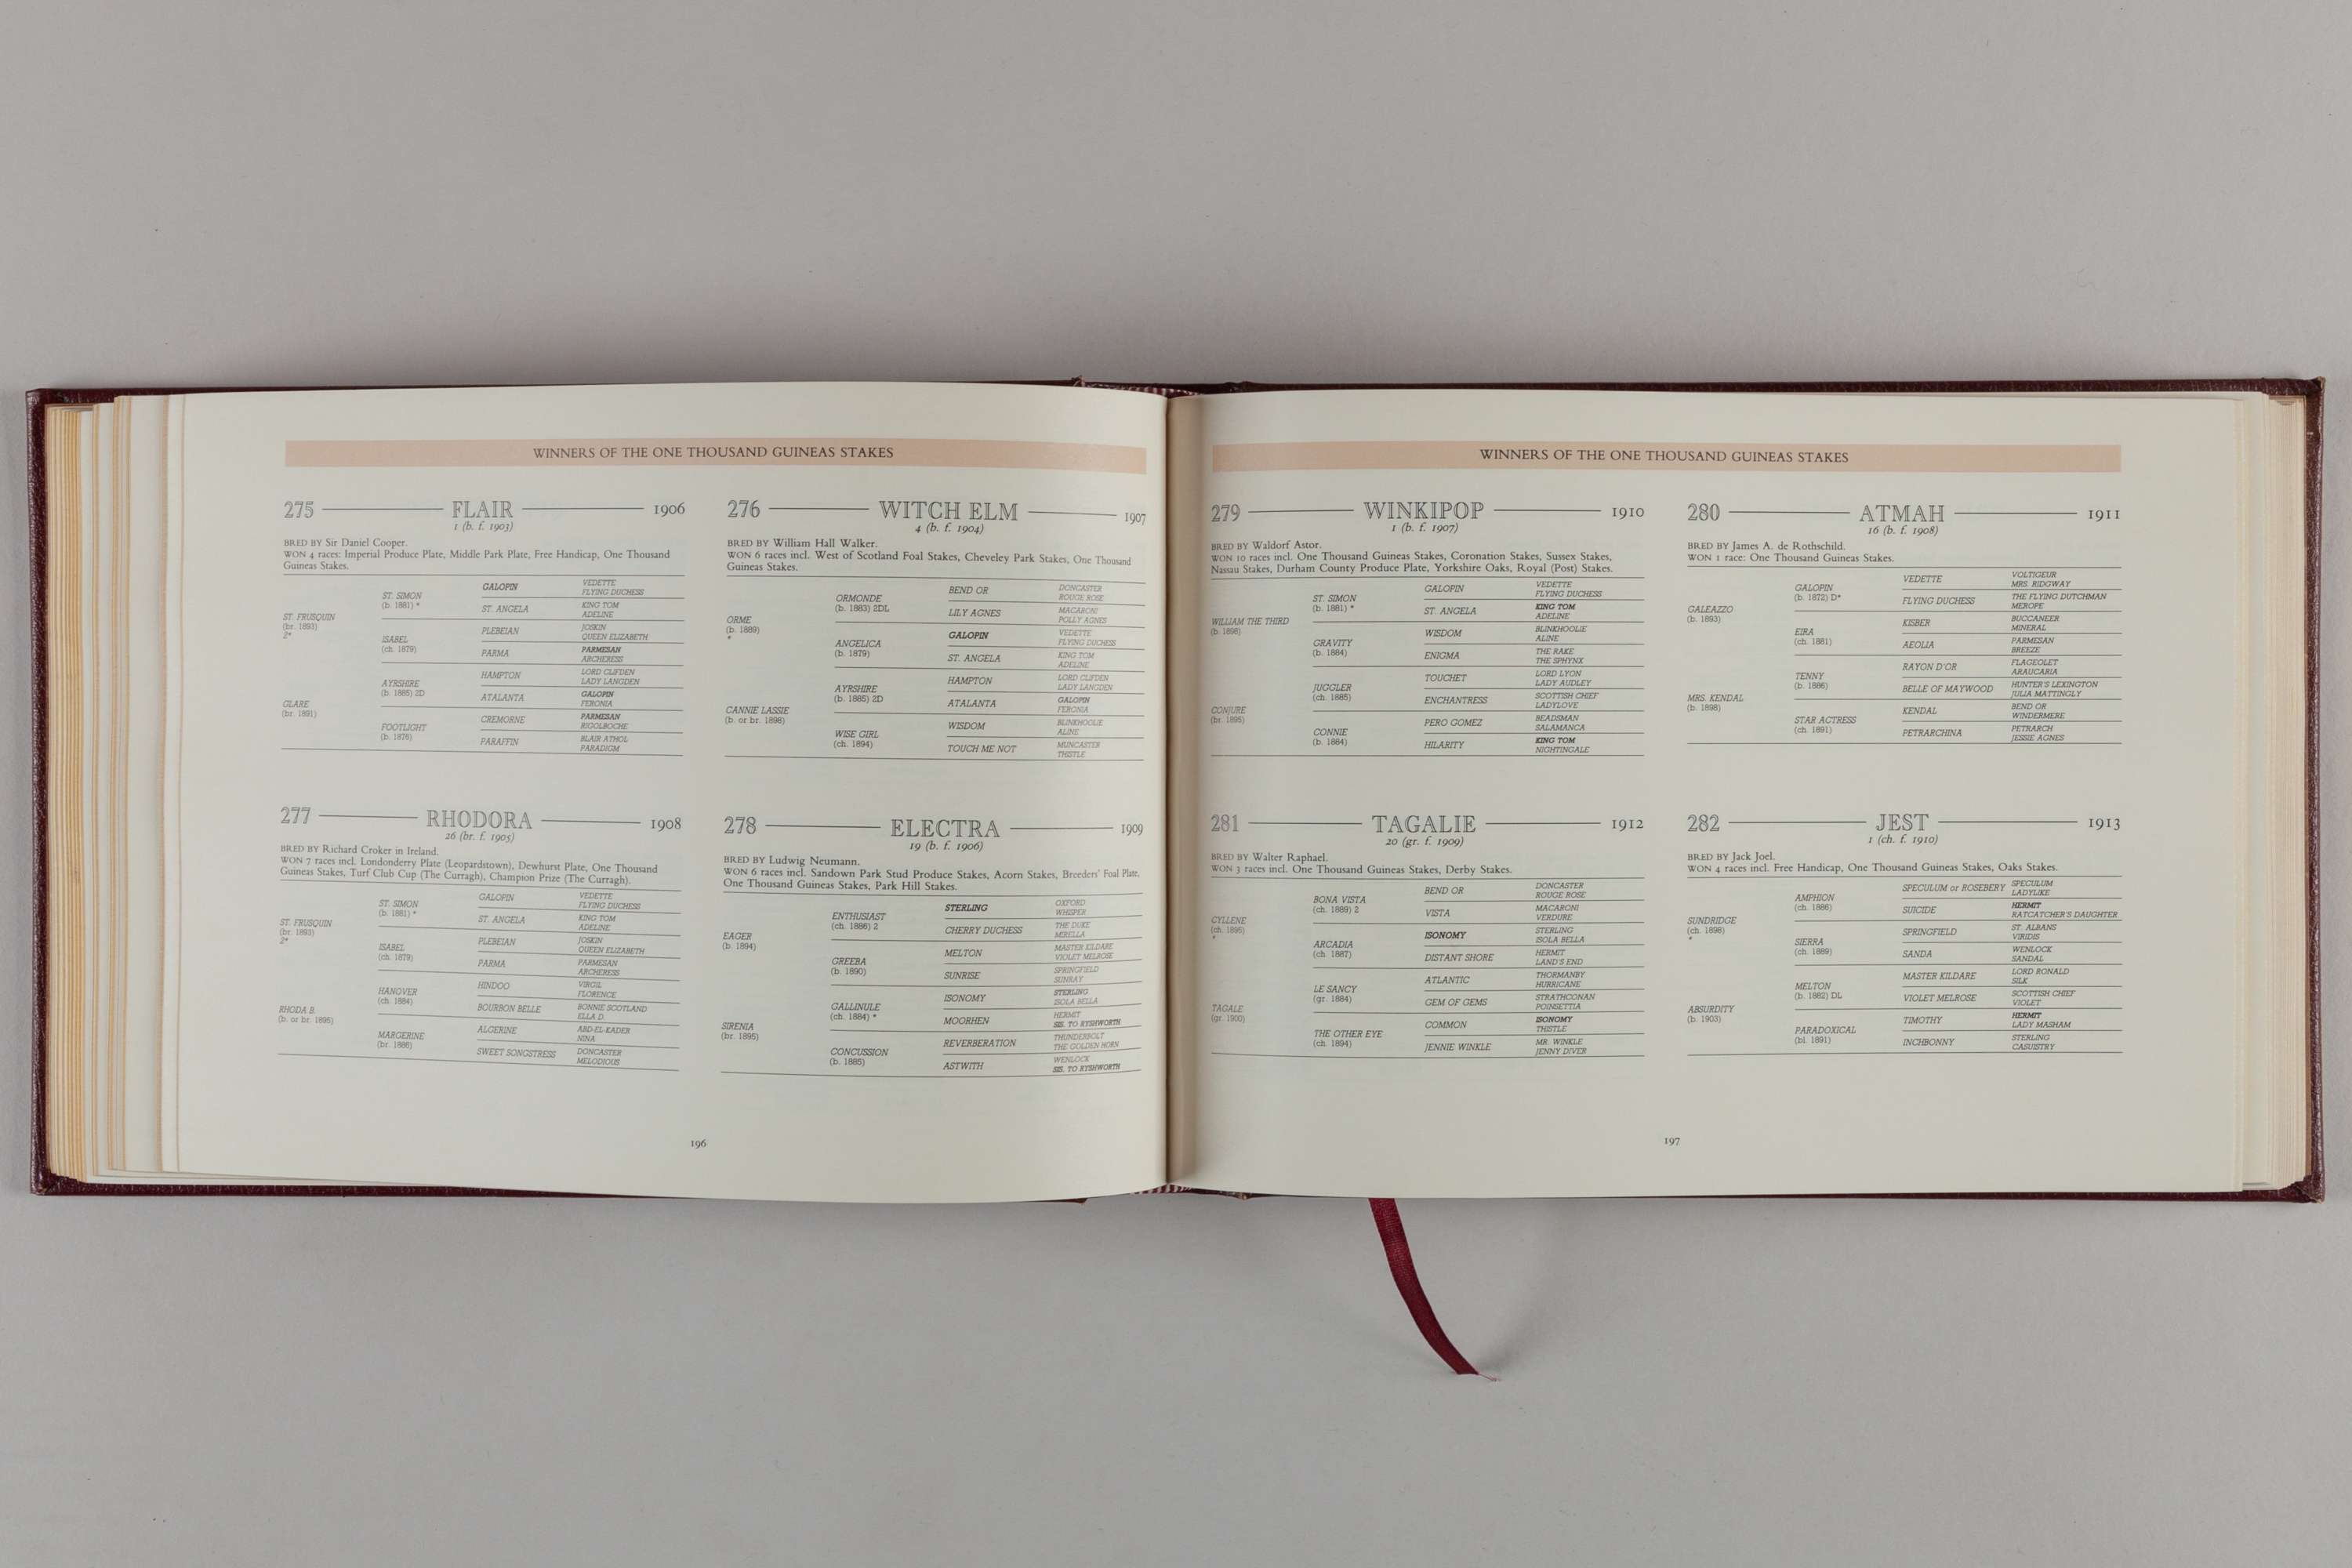 WINNERS OF THE ONE THOUSAND GUINEAS STAKES
275 FLAIR 1906
1 (b. f. 1903)
BRED BY Sir Daniel Cooper.
WON 4 races: Imperial Produce Plate, Middle Park Plate, Free Handicap, One Thousand
Guineas Stakes.
ST. FRUSQUIN
(br. 1893)
2*
GLARE
(br. 1891)
ST. SIMON
(b. 1881) *
ISABEL
(ch. 1879)
AYRSHIRE
(b. 1885) 2D
FOOTLIGHT
(b. 1876)
GALOPIN
ST. ANGELA
PLEBEIAN
PARMA
HAMPTON
ATALANTA
CREMORNE
PARAFFIN
VEDETTE
FLYING DUCHESS
KING TOM
ADELINE
JOSKIN
QUEEN ELIZABETH
PARMESAN
ARCHERESS
LORD CLIFDEN
LADY LANGDEN
GALOPIN
FERONIA
PARMESAN
RIGOLBOCHE
BLAIR ATHOL
PARADIGM
276 WITCH ELM 1907
4 (b. f. 1904)
BRED BY William Hall Walker.
WON 6 races incl. West of Scotland Foal Stakes, Cheveley Park Stakes, One Thousand
Guineas Stakes.
ORME
(b. 1889)
*
CANNIE LASSIE
(b. or br. 1898)
ORMONDE
(b. 1883) 2DL
ANGELICA
(b. 1879)
AYRSHIRE
(b. 1885) 2D
WISE GIRL
(ch. 1894)
BEND OR
LILY AGNES
GALOPIN
ST. ANGELA
HAMPTON
ATALANTA
WISDOM
TOUCH ME NOT
DONCASTER
ROUGE ROSE
MACARONI
POLLY AGNES
VEDETTE
FLYING DUCHESS
KING TOM
ADELINE
LORD CLIFDEN
LADY LANGDEN
GALOPIN
FERONIA
BLINKHOOLIE
ALINE
MUNCASTER
THISTLE
277 RHODORA 1908
26 (br. f. 1905)
BRED BY Richard Croker in Ireland.
WON 7 races incl. Londonderry Plate (Leopardstown), Dewhurst Plate, One Thousand
Guineas Stakes, Turf Club Cup (The Curragh), Champion Prize (The Curragh).
ST. FRUSQUIN
(br. 1893)
2*
RHODA B.
(b. or br. 1895)
ST. SIMON
(b. 1881) *
ISABEL
(ch. 1879)
HANOVER
(ch. 1884)
MARGERINE
(br. 1886)
GALOPIN
ST. ANGELA
PLEBEIAN
PARMA
HINDOO
BOURBON BELLE
ALGERINE
SWEET SONGSTRESS
VEDETTE
FLYING DUCHESS
KING TOM
ADELINE
JOSKIN
QUEEN ELIZABETH
PARMESAN
ARCHERESS
VIRGIL
FLORENCE
BONNIE SCOTLAND
ELLA D.
ABD-EL-KADER
NINA
DONCASTER
MELODIOUS
278 ELECTRA 1909
19 (b. f. 1906)
BRED BY Ludwig Neumann.
WON 6 races incl. Sandown Park Stud Produce Stakes, Acorn Stakes, Breeders' Foal Plate,
One Thousand Guineas Stakes, Park Hill Stakes.
EAGER
(b. 1894)
SIRENIA
(br. 1895)
ENTHUSIAST
(ch. 1886) 2
GREEBA
(b. 1890)
GALLINULE
(ch. 1884) *
CONCUSSION
(b. 1885)
STERLING
CHERRY DUCHESS
MELTON
SUNRISE
ISONOMY
MOORHEN
REVERBERATION
ASTWITH
OXFORD
WHISPER
THE DUKE
MIRELLA
MASTER KILDARE
VIOLET MELROSE
SPRINGFIELD
SUNRAY
STERLING
ISOLA BELLA
HERMIT
SIS. TO RYSHWORTH
THUNDERBOLT
THE GOLDEN HORN
WENLOCK
SIS. TO RYSHWORTH
196
WINNERS OF THE ONE THOUSAND GUINEAS STAKES
279 WINKIPOP 1910
1 (b. f. 1907)
BRED BY Waldorf Astor.
WON 10 races incl. One Thousand Guineas Stakes, Coronation Stakes, Sussex Stakes,
Nassau Stakes, Durham County Produce Plate, Yorkshire Oaks, Royal (Post) Stakes.
WILLIAM THE THIRD
(b. 1898)
CONJURE
(br. 1895)
ST. SIMON
(b. 1881) *
GRAVITY
(b. 1884)
JUGGLER
(ch. 1885)
CONNIE
(b. 1884)
GALOPIN
ST. ANGELA
WISDOM
ENIGMA
TOUCHET
ENCHANTRESS
PERO GOMEZ
HILARITY
VEDETTE
FLYING DUCHESS
KING TOM
ADELINE
BLINKHOOLIE
ALINE
THE RAKE
THE SPHYNX
LORD LYON
LADY AUDLEY
SCOTTISH CHIEF
LADYLOVE
BEADSMAN
SALAMANCA
KING TOM
NIGHTINGALE
280 ATMAH 1911
16 (b. f. 1908)
BRED BY James A. de Rothschild.
WON 1 race: One Thousand Guineas Stakes.
GALEAZZO
(b. 1893)
MRS. KENDAL
(b. 1898)
GALOPIN
(b. 1872) D*
EIRA
(ch. 1881)
TENNY
(b. 1886)
STAR ACTRESS
(ch. 1891)
VEDETTE
FLYING DUCHESS
KISBER
AEOLIA
RAYON D'OR
BELLE OF MAYWOOD
KENDAL
PETRARCHINA
VOLTIGEUR
MRS. RIDGWAY
THE FLYING DUTCHMAN
MEROPE
BUCCANEER
MINERAL
PARMESAN
BREEZE
FLAGEOLET
ARAUCARIA
HUNTER'S LEXINGTON
JULIA MATTINGLY
BEND OR
WINDERMERE
PETRARCH
JESSIE AGNES
281 TAGALIE 1912
20 (gr. f. 1909)
BRED BY Walter Raphael.
WON 3 races incl. One Thousand Guineas Stakes, Derby Stakes.
CYLLENE
(ch. 1895)
*
TAGALE
(gr. 1900)
BONA VISTA
(ch. 1889) 2
ARCADIA
(ch. 1887)
LE SANCY
(gr. 1884)
THE OTHER EYE
(ch. 1894)
BEND OR
VISTA
ISONOMY
DISTANT SHORE
ATLANTIC
GEM OF GEMS
COMMON
JENNIE WINKLE
DONCASTER
ROUGE ROSE
MACARONI
VERDURE
STERLING
ISOLA BELLA
HERMIT
LAND'S END
THORMANBY
HURRICANE
STRATHCONAN
POINSETTIA
ISONOMY
THISTLE
MR. WINKLE
JENNY DIVER
282 JEST 1913
1 (ch. f. 1910)
BRED BY Jack Joel.
WON 4 races incl. Free Handicap, One Thousand Guineas Stakes, Oaks Stakes.
SUNDRIDGE
(ch. 1898)
*
ABSURDITY
(b. 1903)
AMPHION
(ch. 1886)
SIERRA
(ch. 1889)
MELTON
(b. 1882) DL
PARADOXICAL
(bl. 1891)
SPECULUM or ROSEBERY
SUICIDE
SPRINGFIELD
SANDA
MASTER KILDARE
VIOLET MELROSE
TIMOTHY
INCHBONNY
SPECULUM
LADYLIKE
HERMIT
RATCATCHER'S DAUGHTER
ST. ALBANS
VIRIDIS
WENLOCK
SANDAL
LORD RONALD
SILK
SCOTTISH CHIEF
VIOLET
HERMIT
LADY MASHAM
STERLING
CASUISTRY
197